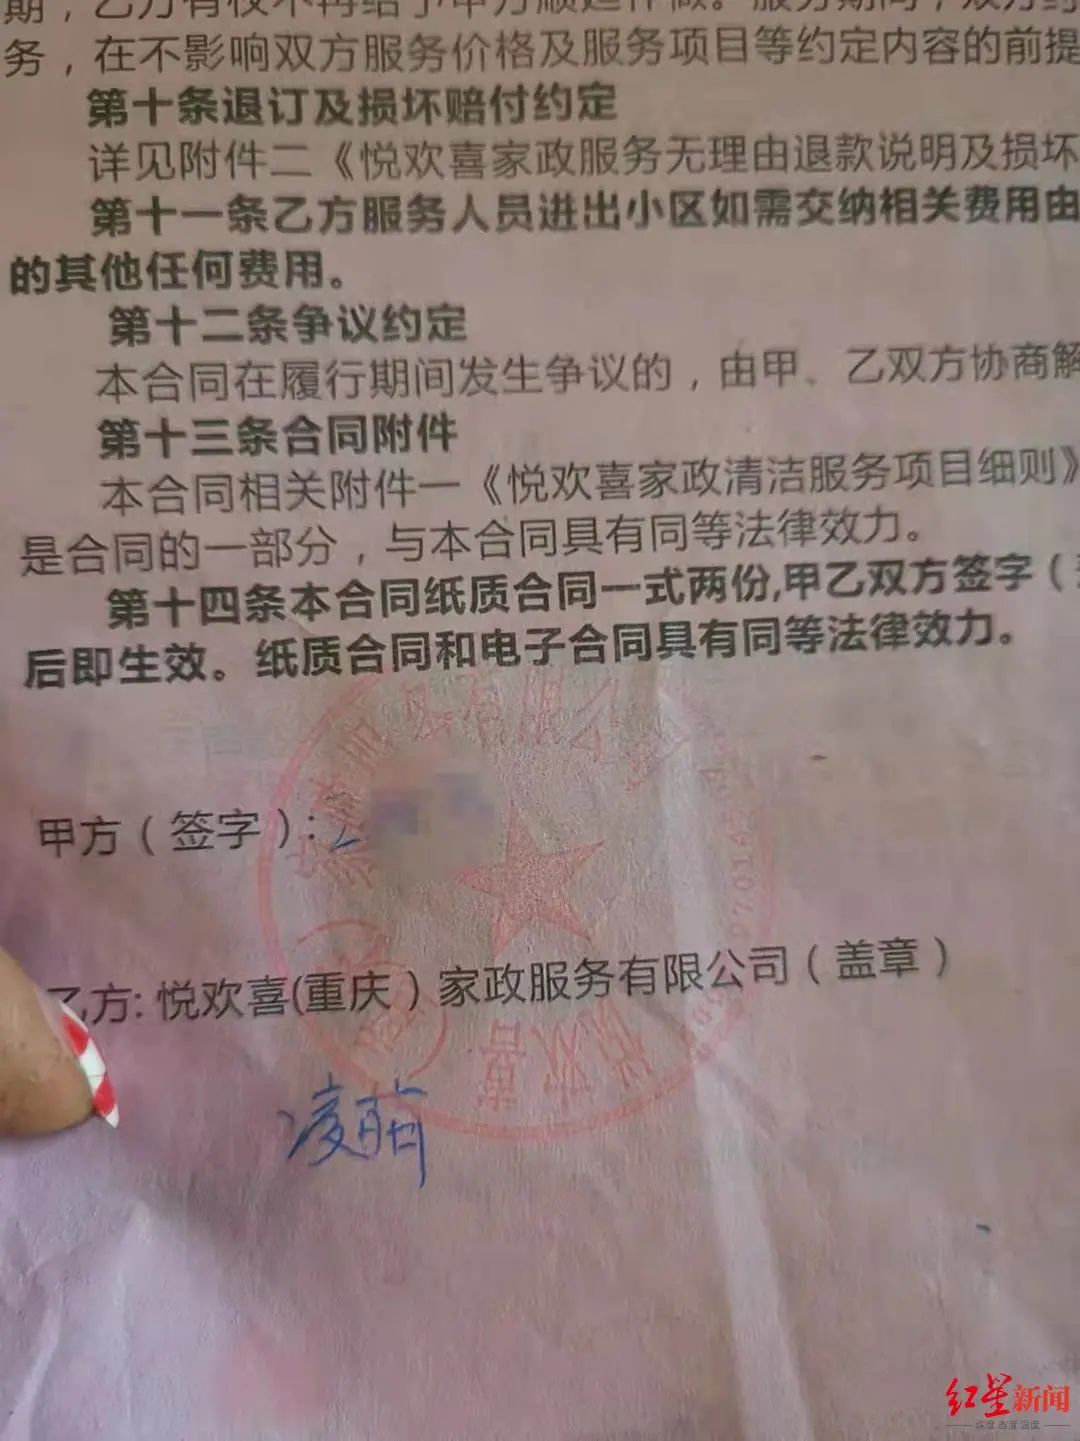 期，乙方有权不再给予甲方顺延作做。服务期间，双方约
务，在不影响双方服务价格及服务项目等约定内容的前提
第十条退订及损坏赔付约定
详见附件二《悦欢喜家政服务无理由退款说明及损坏
第十一条乙方服务人员进出小区如需交纳相关费用由
的其他任何费用。
第十二条争议约定
本合同在履行期间发生争议的，由甲、乙双方协商解
第十三条合同附件
本合同相关附件一《悦欢喜家政清洁服务项目细则》
是合同的一部分，与本合同具有同等法律效力。
第十四条本合同纸质合同一式两份,甲乙双方签字（
后即生效。纸质合同和电子合同具有同等法律效力。
甲方（签字）:
乙方: 悦欢喜(重庆）家政服务有限公司（盖章）
红星新闻
深度 态度 温度